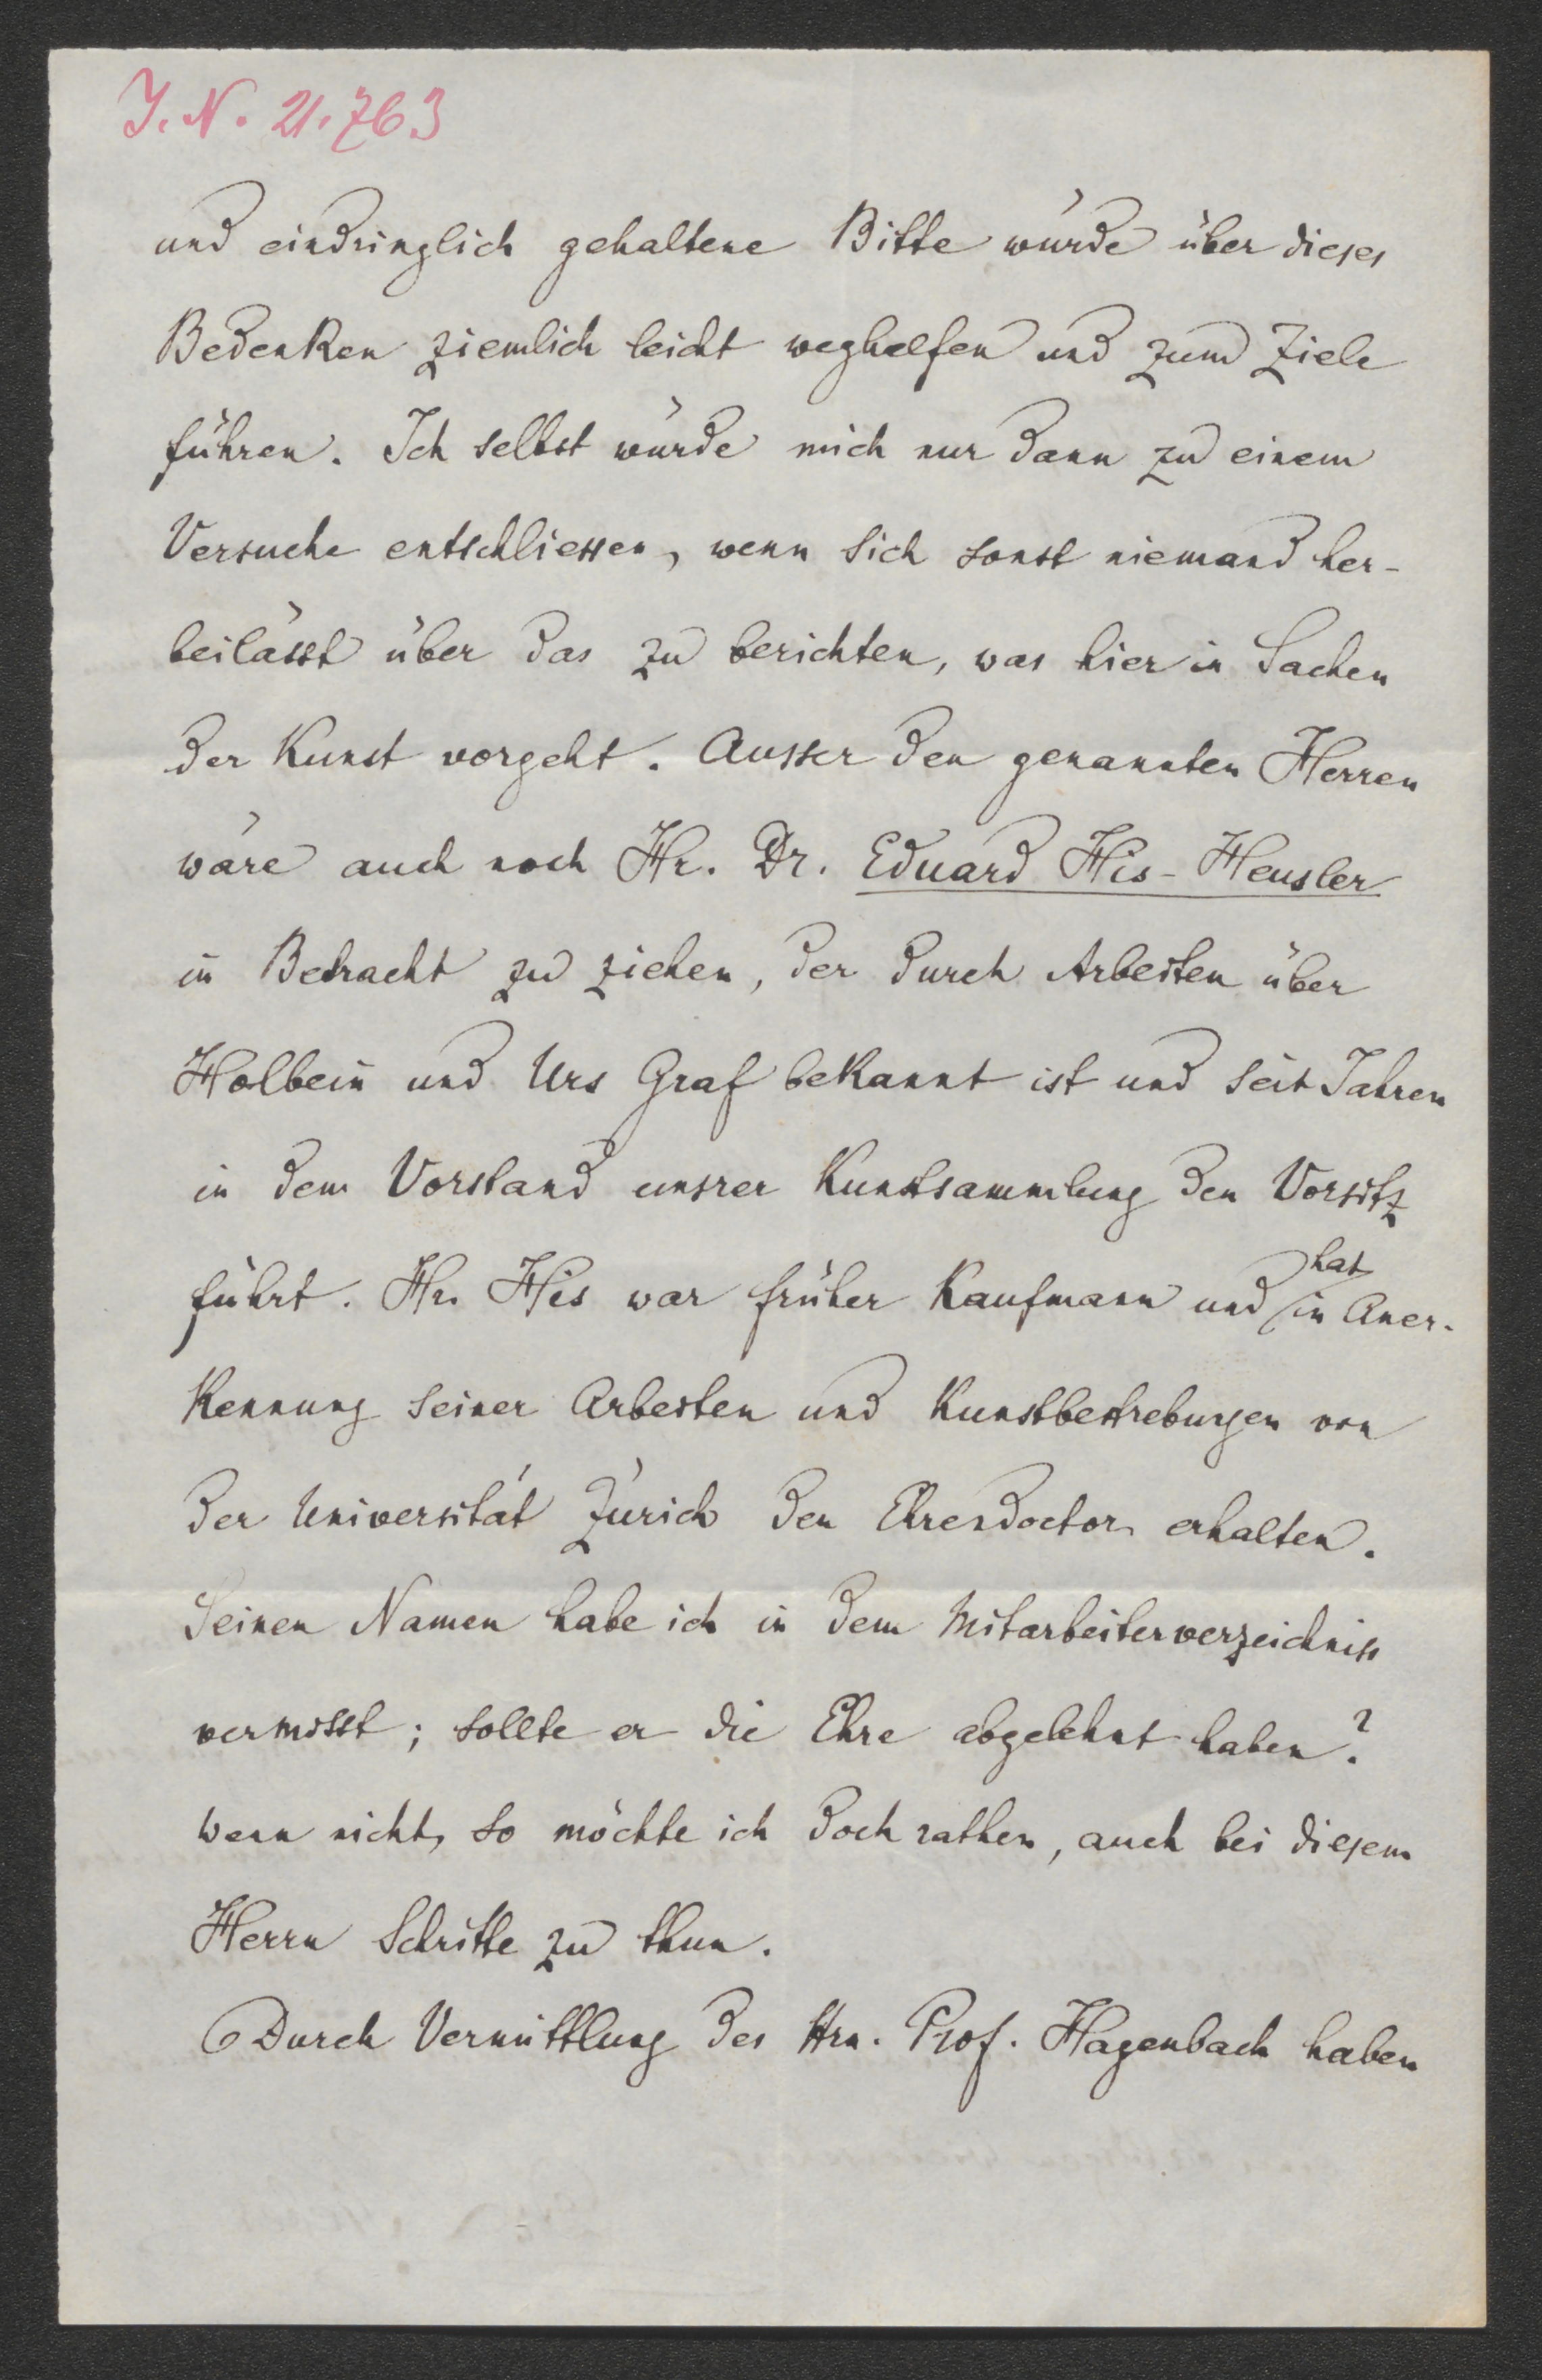 J. N. 21.763
und eindringlich gehaltene Bitte würde über dieses
Bedenken ziemlich leicht weghelfen und zum Ziele
führen. Ich selbst würde mich nur dann zu einem
Versuche entschliessen, wenn sich sonst niemand her-
beilässt über das zu berichten, was hier in Sachen
der Kunst vorgeht. Ausser den genannten Herren
wäre auch noch Hr. Dr. Eduard His-Heusler
in Betracht zu ziehen, der durch Arbeiten über
Holbein und Urs Graf bekannt ist und seit Jahren
in dem Vorstand unsrer Kunstsammlung den Vorsitz
führt. Hr. His war früher Kaufmann und hat in Aner-
kennung seiner Arbeiten und Kunstbestrebungen von
der Universität Zürich den Ehrendoctor erhalten.
Seinen Namen habe ich in dem Mitarbeiterverzeichniss
vermisst; sollte er die Ehre abgelehnt haben?
wenn nicht, so möchte ich doch rathen, auch bei diesem
Herrn Schritte zu thun.
Durch Vermittlung des Hrn. Prof. Hagenbach haben